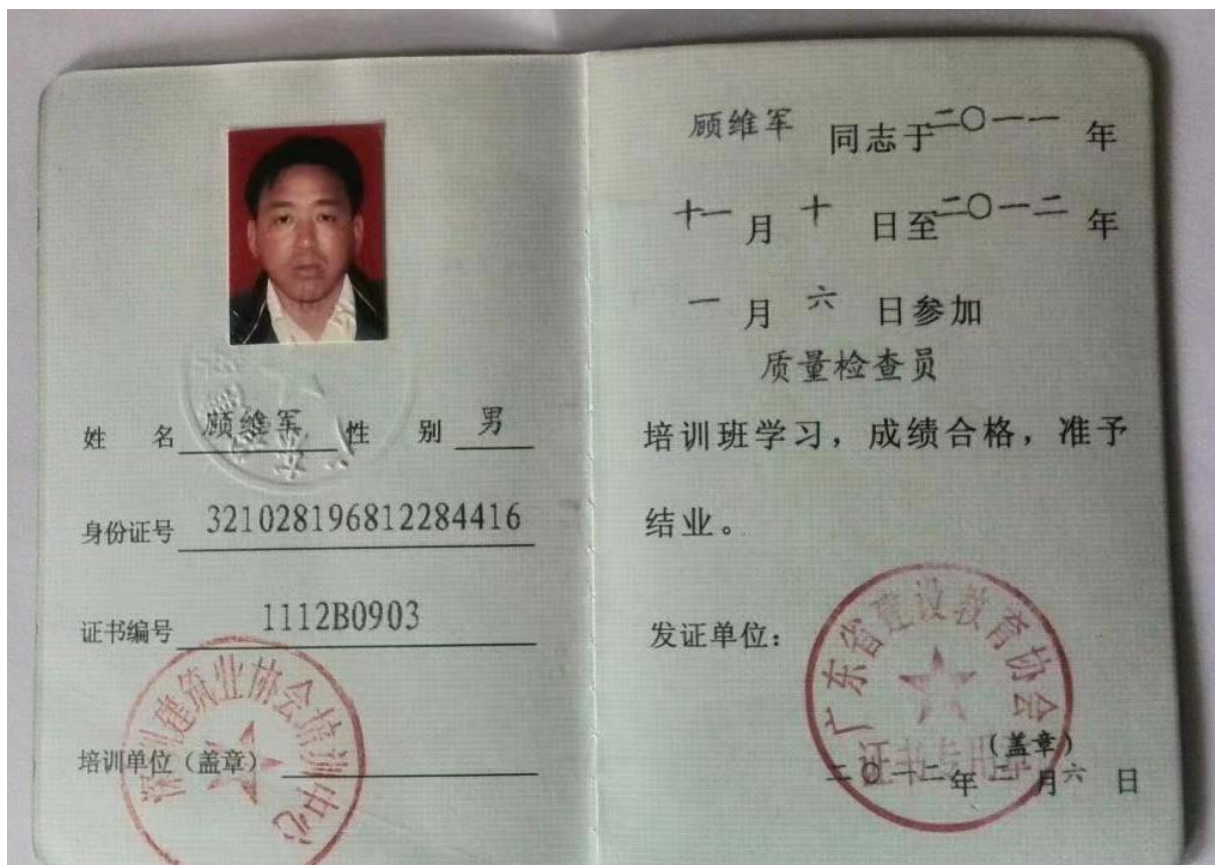 姓 名 顾维军 性 别 男
身份证号 321028196812284416
证书编号 1112B0903
培训单位（盖章）
深圳建筑业协会培训中心
顾维军 同志于二〇一一 年
十一月 十 日至二〇一二 年
一月 六 日参加
质量检查员
培训班学习，成绩合格，准予
结业。
发证单位：
广东省建设教育协会
证书专用章
（盖章）
二〇一二年 二 月六 日